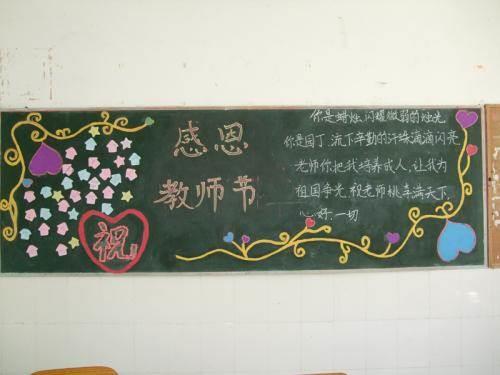 感恩
教师节
祝
你是蜡烛,闪耀微弱的烛光
你是园丁,流下辛勤的汗珠滴滴闪亮
老师你把我培养成人,让我为
祖国争光,祝老师桃李满天下
好一切